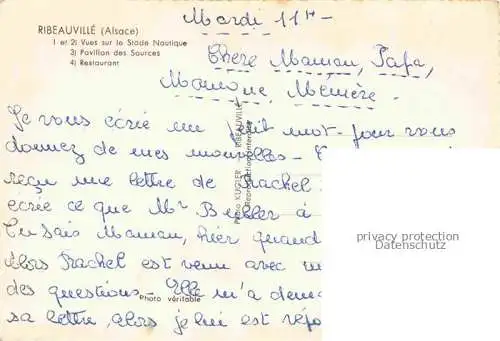 RIBEAUVILLÉ (Alsace)
1 et 2) Vues sur le Stade Nautique
3) Pavillon des Sources
4) Restaurant
Mardi 11h
Chere Maman, Papa,
Mamone, Mémère.
Je vous écrie un petit mot pour vous
donnez de mes nouvelles -
reçu une lettre de Rachel
écrie ce que Mr B à
Tu sais Maman, hier quand
alors Rachel est venu avec
des questions - Elle m'a
sa lettre, alors je lui est
Photo véritable
Photo KUGLER RIBEAUVILLÉ
Reproduction interdite
privacy protection
Datenschutz